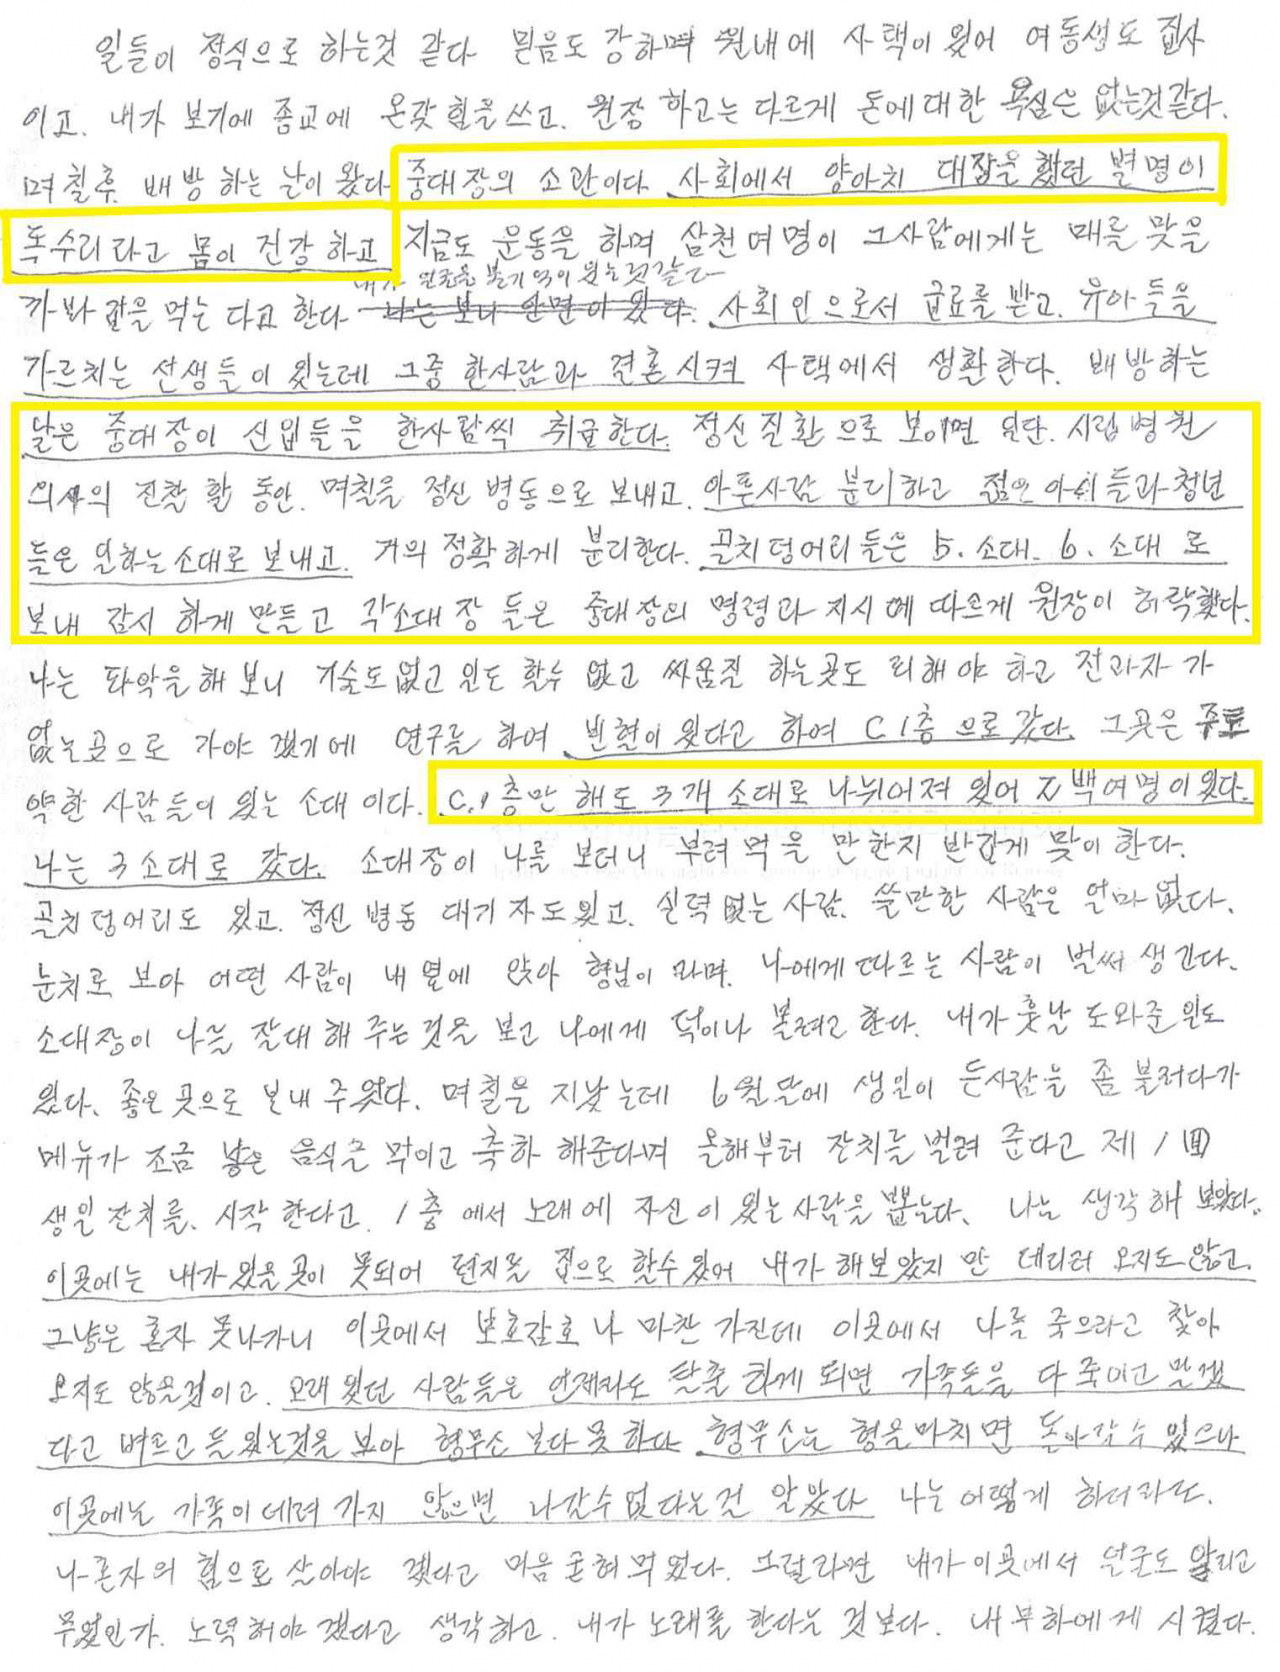 일들이 정식으로 하는것 같다 믿음도 강하며 원내에 사택이 있어 여동생도 집사
이고. 내가 보기에 종교에 온갖 힘을 쓰고. 원장 하고는 다르게 돈에 대한 욕심은 없는것같다.
며칠후 배방 하는 날이 왔다 중대장의 소관이다. 사회에서 양아치 대장을 했던 별명이
독수리라고 몸이 건강 하고 지금도 운동을 하며 삼천여명이 그사람에게는 매를 맞을
내가 얻은 볼기억이 있는것같다
까봐 겁을 먹는 다고 한다 사회인으로서 급료를 받고. 유아들을
가르치는 선생들이 있는데 그중 한사람과 결혼시켜 사택에서 생활한다. 배방하는
날은 중대장이 신입들을 한사람씩 취급한다. 정신질환으로 보이면 일단. 시립병원
의사의 진찰 할 동안. 며칠을 정신 병동으로 보내고. 아픈사람 분리하고 젊은 아이들과 청년
들은 일하는소대로 보내고. 거의 정확하게 분리한다. 골치덩어리들은 5. 소대. 6. 소대 로
보내 감시 하게 만들고 각소대장 들은 중대장의 명령과 지시에 따르게 원장이 허락했다.
나는 파악을 해 보니 기술도 없고 일도 할수 없고 싸움질 하는곳도 피해야 하고 전과자 가
없는곳으로 가야 겠기에 연구를 하여 빈혈이 있다고 하여 C. 1층 으로 갔다. 그곳은
약한 사람들이 있는 소대 이다. C. 1 층만 해도 3개 소대로 나뉘어져 있어 2백여명이 있다.
나는 3소대로 갔다. 소대장이 나를 보더니 부려 먹을 만 한지 반갑게 맞이 한다.
골치덩어리도 있고. 정신 병동 대기자도 있고. 실력 없는 사람. 쓸만한 사람은 얼마 없다.
눈치로 보아 어떤 사람이 내 옆에 앉아 형님이 라며. 나에게 따르는 사람이 벌써 생긴다.
소대장이 나를 잘대 해 주는것을 보고 나에게 덕이나 볼려고 한다. 내가 훗날 도와준 일도
있다. 좋은 곳으로 보내 주었다. 며칠을 지났는데 6월달에 생일이 든사람을 좀 불러다가
메뉴가 조금 낳은 음식을 먹이고 축하 해준다며 올해부터 잔치를 벌려 준다고 제 1 回
생일 잔치를. 시작 한다고. 1층 에서 노래에 자신이 있는 사람을 뽑는다. 나는 생각해 보았다.
이곳에는 내가 있을 곳이 못되어 편지를 집으로 할수 있어 내가 해보았지 만 데리러 오지도 않고.
그냥은 혼자 못나가니 이곳에서 보호감호 나 마찬 가진데 이곳에서 나를 죽으라고 찾아
오지도 않을것이고. 오래 있던 사람들은 언제라도 탈출 하게 되면 가족들을 다 죽이고 말겠
다고 벼르고 들 있는것을 보아 형무소 보다 못 하다. 형무소는 형을마치면 돌아갈수 있으나
이곳에는 가족이 데려 가지 않으면 나갈수 없다는 걸 알았다 나는 어떻게 하더라도.
나혼자의 힘으로 살아야 겠다고 마음 굳혀 먹었다. 그럴라면 내가 이곳에서 얼굴도 알리고
무엇인가. 노력해야 겠다고 생각하고. 내가 노래를 한다는 것보다. 내 부하에게 시켰다.